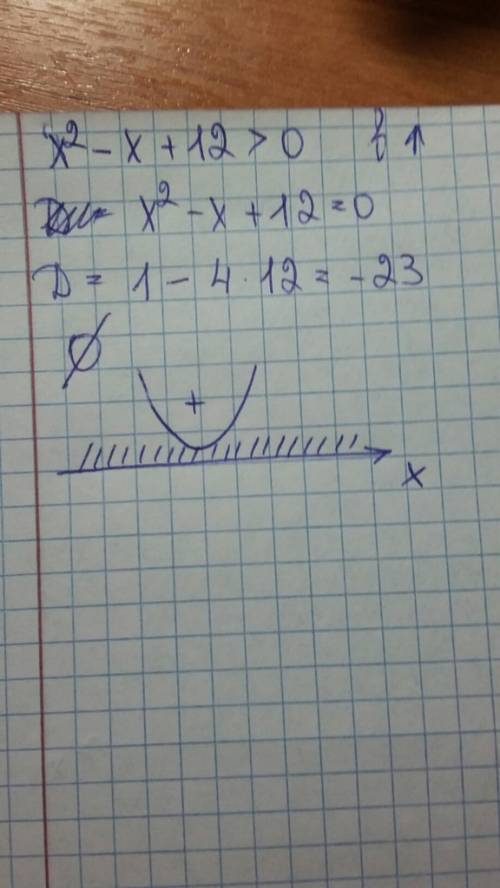 x² - x + 12 > 0 в ↑
x² - x + 12 = 0
D = 1 - 4 · 12 = -23
∅
+
x